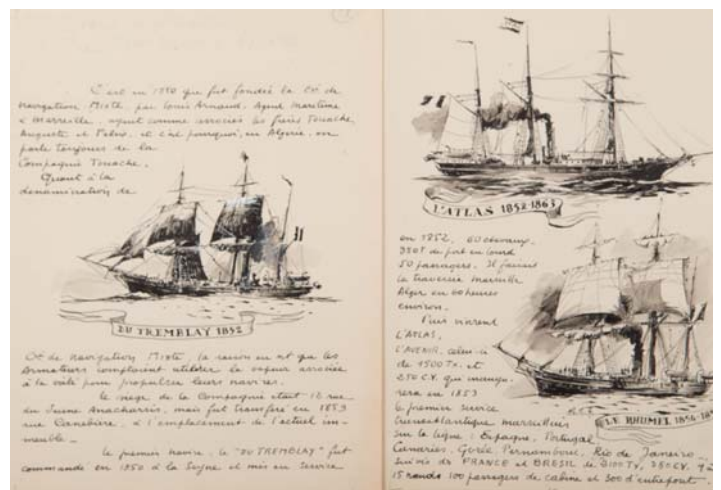 C'est en 1850 que fut fondée la Cie de
Navigation Mixte, par Louis Arnaud, Agent Maritime
à Marseille, ayant comme associés les frères Touache,
Auguste et Félix, et c'est pourquoi, en Algérie, on
parle toujours de la
Compagnie Touache.
Quant à la
dénomination de
DU TREMBLAY 1852
Cie de Navigation Mixte, la raison en est que les
Armateurs comptaient utiliser la vapeur associée
à la voile pour propulser leurs navires.
Le siège de la Compagnie était 12 rue
du Jeune Anacharsis, mais fut transféré en 1853
rue Canebière, à l'emplacement de l'actuel im-
meuble -
Le premier navire, le "DU TREMBLAY" fut
commandé en 1850 à la Seyne et mis en service
L'ATLAS 1852-1863
en 1852, 60 chevaux,
350T. de port en lourd
50 passagers. Il faisait
la traversée Marseille
Alger en 60 heures
environ.
Puis vinrent
L'ATLAS,
L'AVENIR, celui-ci
de 1500 Tx. et
250 C.V. qui inaugu-
rera en 1853
le premier service
transatlantique marseillais
sur la ligne : Espagne, Portugal
LE RHUMEL
Canaries, Gorée, Pernambouc, Rio de Janeiro -
Suivis du FRANCE et BRESIL de
15 nœuds 100 passagers de cabine et 300 d'entrepont.